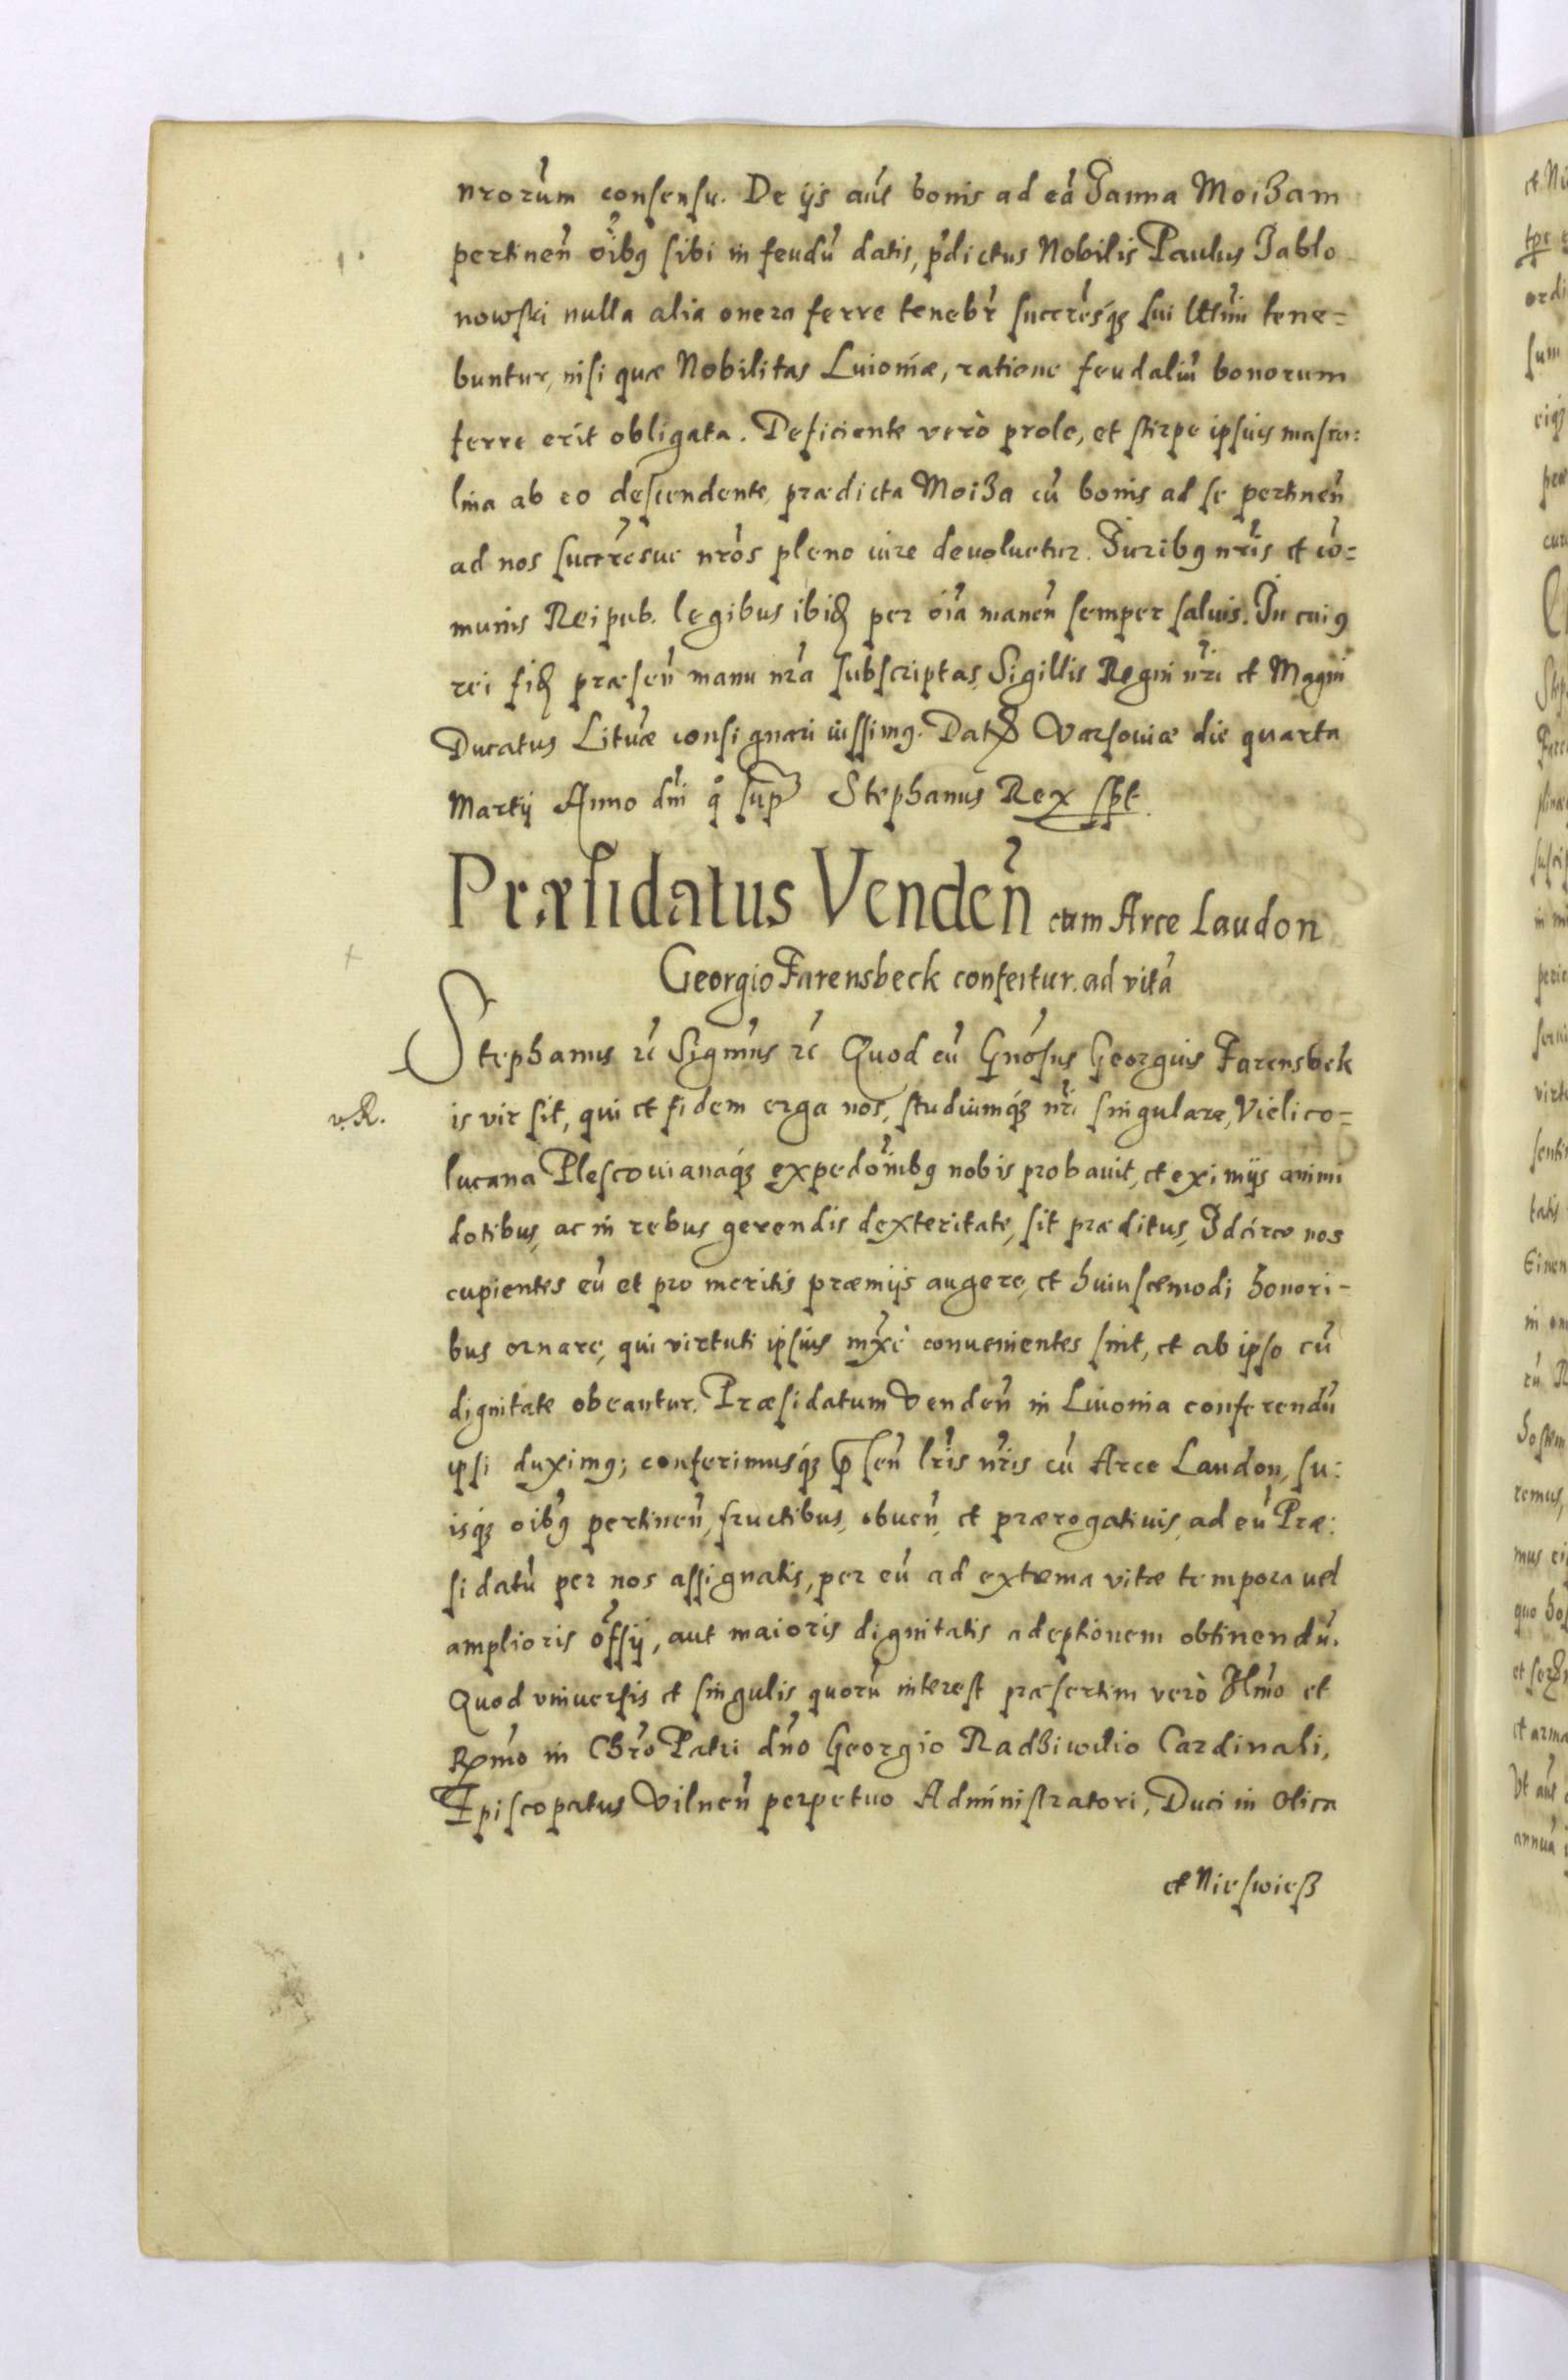 nrorum consensu. De ijs aut bonis ad eā Janna Moizam
pertinen̄ oībꝫ sibi in feudū datis, pdictus Nobilis Paulus Jablo
nowski nulla alia onera ferre tenebr̄ succr̄esqꝫ sui ltimi tene=
buntur, nisi quæ Nobilitas Liuoniæ, ratione feudaliū bonorum
ferre erit obligata. Deficiente verò prole, et stirpe ipsius mascu:
lina ab eo descendente, prædicta Moiza cū bonis ad se pertinen̄
ad nos succr̄esue nr̄os pleno iure deuoluetur. Juribꝫ nr̄is et cō=
munis Reipub. legibus ibid per oīa manen̄ semper saluis. In cuiꝫ
rei fid præsen̄ manu nr̄a subscriptas, Sigillis Regni nr̄i et Magni
Ducatus Lituæ consignari iussimꝫ. Dat Varsouiæ die quarta
Martij Anno dn̄i q̊ sup Stephanus Rex sst.
Præsidatus Venden̄ cum Arce Laudon
Georgio Farensbeck confertur. ad vitā
Stephanus rc̄ Sigm̄us rc̄ Quod cū Gn̄osus Georgius Farensbek
v. R.
is vir sit, qui et fidem erga nos, studiumqꝫ nr̄i singulare, Vielico=
lucana Plescouianaqꝫ expedōinibꝫ nobis probauit, et eximijs animi
dotibus, ac in rebus gerendis dexteritate, sit præditus, Idcirco nos
cupientes eū et pro meritis præmijs augere, et huiuscemodi honori-
bus ornare, qui virtuti ipsius mx̄è conuenientes sint, et ab ipso cū
dignitate obeantur. Præsidatum Venden̄ in Liuonia conferendū
ipsi duximꝫ; conferimusqꝫ p̄sen̄ lr̄is nr̄is cū Arce Laudon, su:
isqꝫ oībꝫ pertinen̄, fructibus, obuen̄, et prærogatiuis, ad eū Præ:
sidatū per nos assignatis, per eū ad extrema vitæ tempora uel
amplioris offij, aut maioris dignitatis adeptionem obtinendū.
Quod vniuersis et singulis quorū interest præsertim verò Illm̄o et
Rm̄o in Chr̄o Patri dn̄o Georgio Radziwilio Cardinali,
Episcopatus Vilnen̄ perpetuo Administratori, Duci in Olica
et Nieswiesz